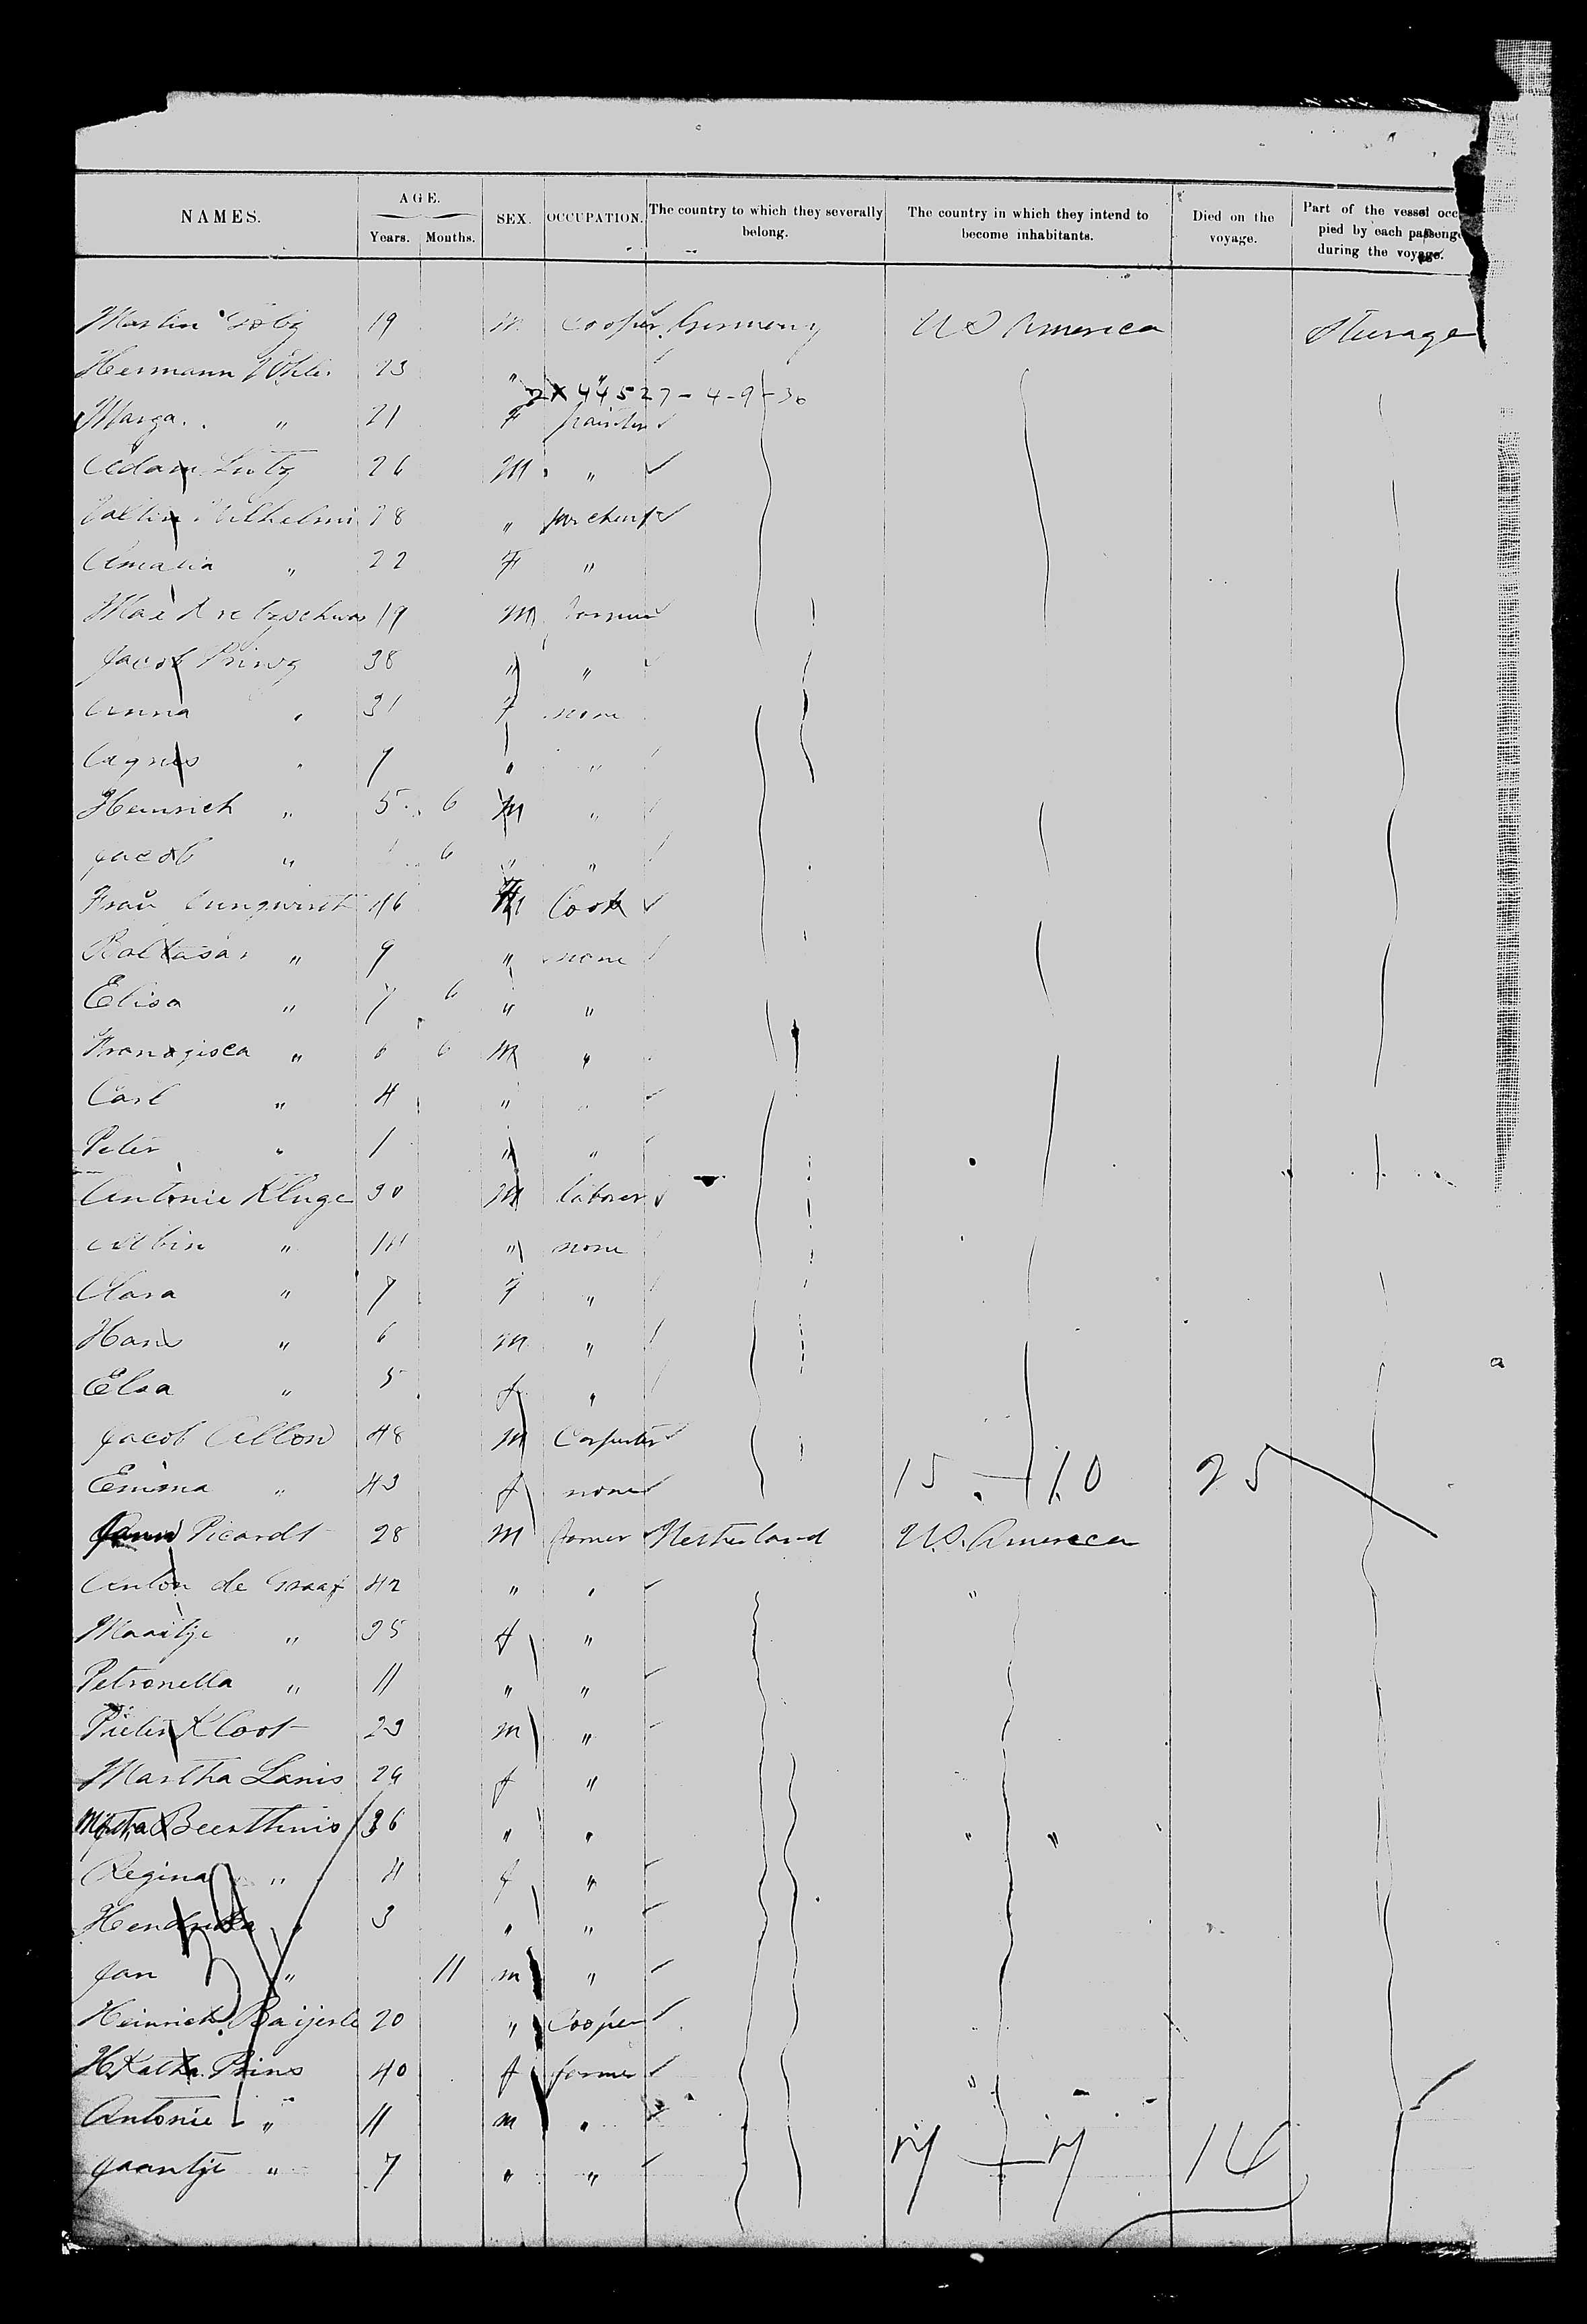 NAMES. AGE. Years. Months. SEX. OCCUPATION. The country to which they severally belong. The country in which they intend to become inhabitants. Died on the voyage. Part of the vessel occ pied by each passenge during the voyage.
Martin 19 m Cooper Germany U S America Steurage
Hermann 23 "
2X44527-4-9-30
Marga. " 21 F painter
Adam Lutz 26 M "
Wilhelmi 28 "
Amalia " 22 F "
19 M
Jacob Prinz 38 " "
Anna " 31 F none
Agnes " 7 " "
Heinrich " 5 6 M "
Jacob " 6 " "
Frau 46 Cook
Baltasar " 9 " none
Elisa " 7 6 " "
Franzisca " 6 6 M "
Carl " 4 " "
Peter " 1 " "
Antonie Kluge 30 M laborer
Albin " " none
Clara " 7 F "
Hans " 6 M "
Elsa " 5 f "
Jacob Allon 48 M Carpenter
Emma " 43 f none 15 - 10 25
Picardt 28 M farmer Netherland U.S. America
Anton de Graaf 42 " " "
Maaitje " 35 f "
Petronella " 11 " "
Pieter Kloot 23 m "
Martha Lanis 24 f "
Beerthuis 36 " " " "
Regina " 4 f "
Hendrika " 3 " "
Jan " 11 m "
Heinrich Baijerle 20 " Cooper
H. Katha. Prins 40 f farmer "
Antonie " 11 m "
Jaantje " 7 " " 7 - 7 14